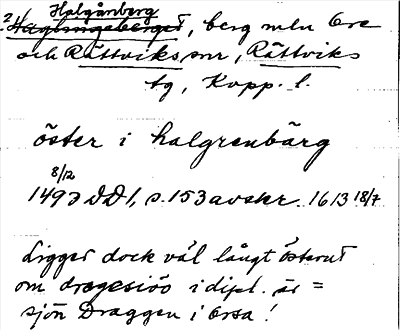 Halgånberg
2. Haglingeberget, berg mln Ore
och Rättviks snr, Rättviks
tg, Kopp. l.
öster i halgrenbärg
8/12
1493 DD1, s. 153 avskr. 1613 18/7
Ligger dock väl långt österut
om dragesiöö i dipl. är =
sjön Draggen i Orsa!